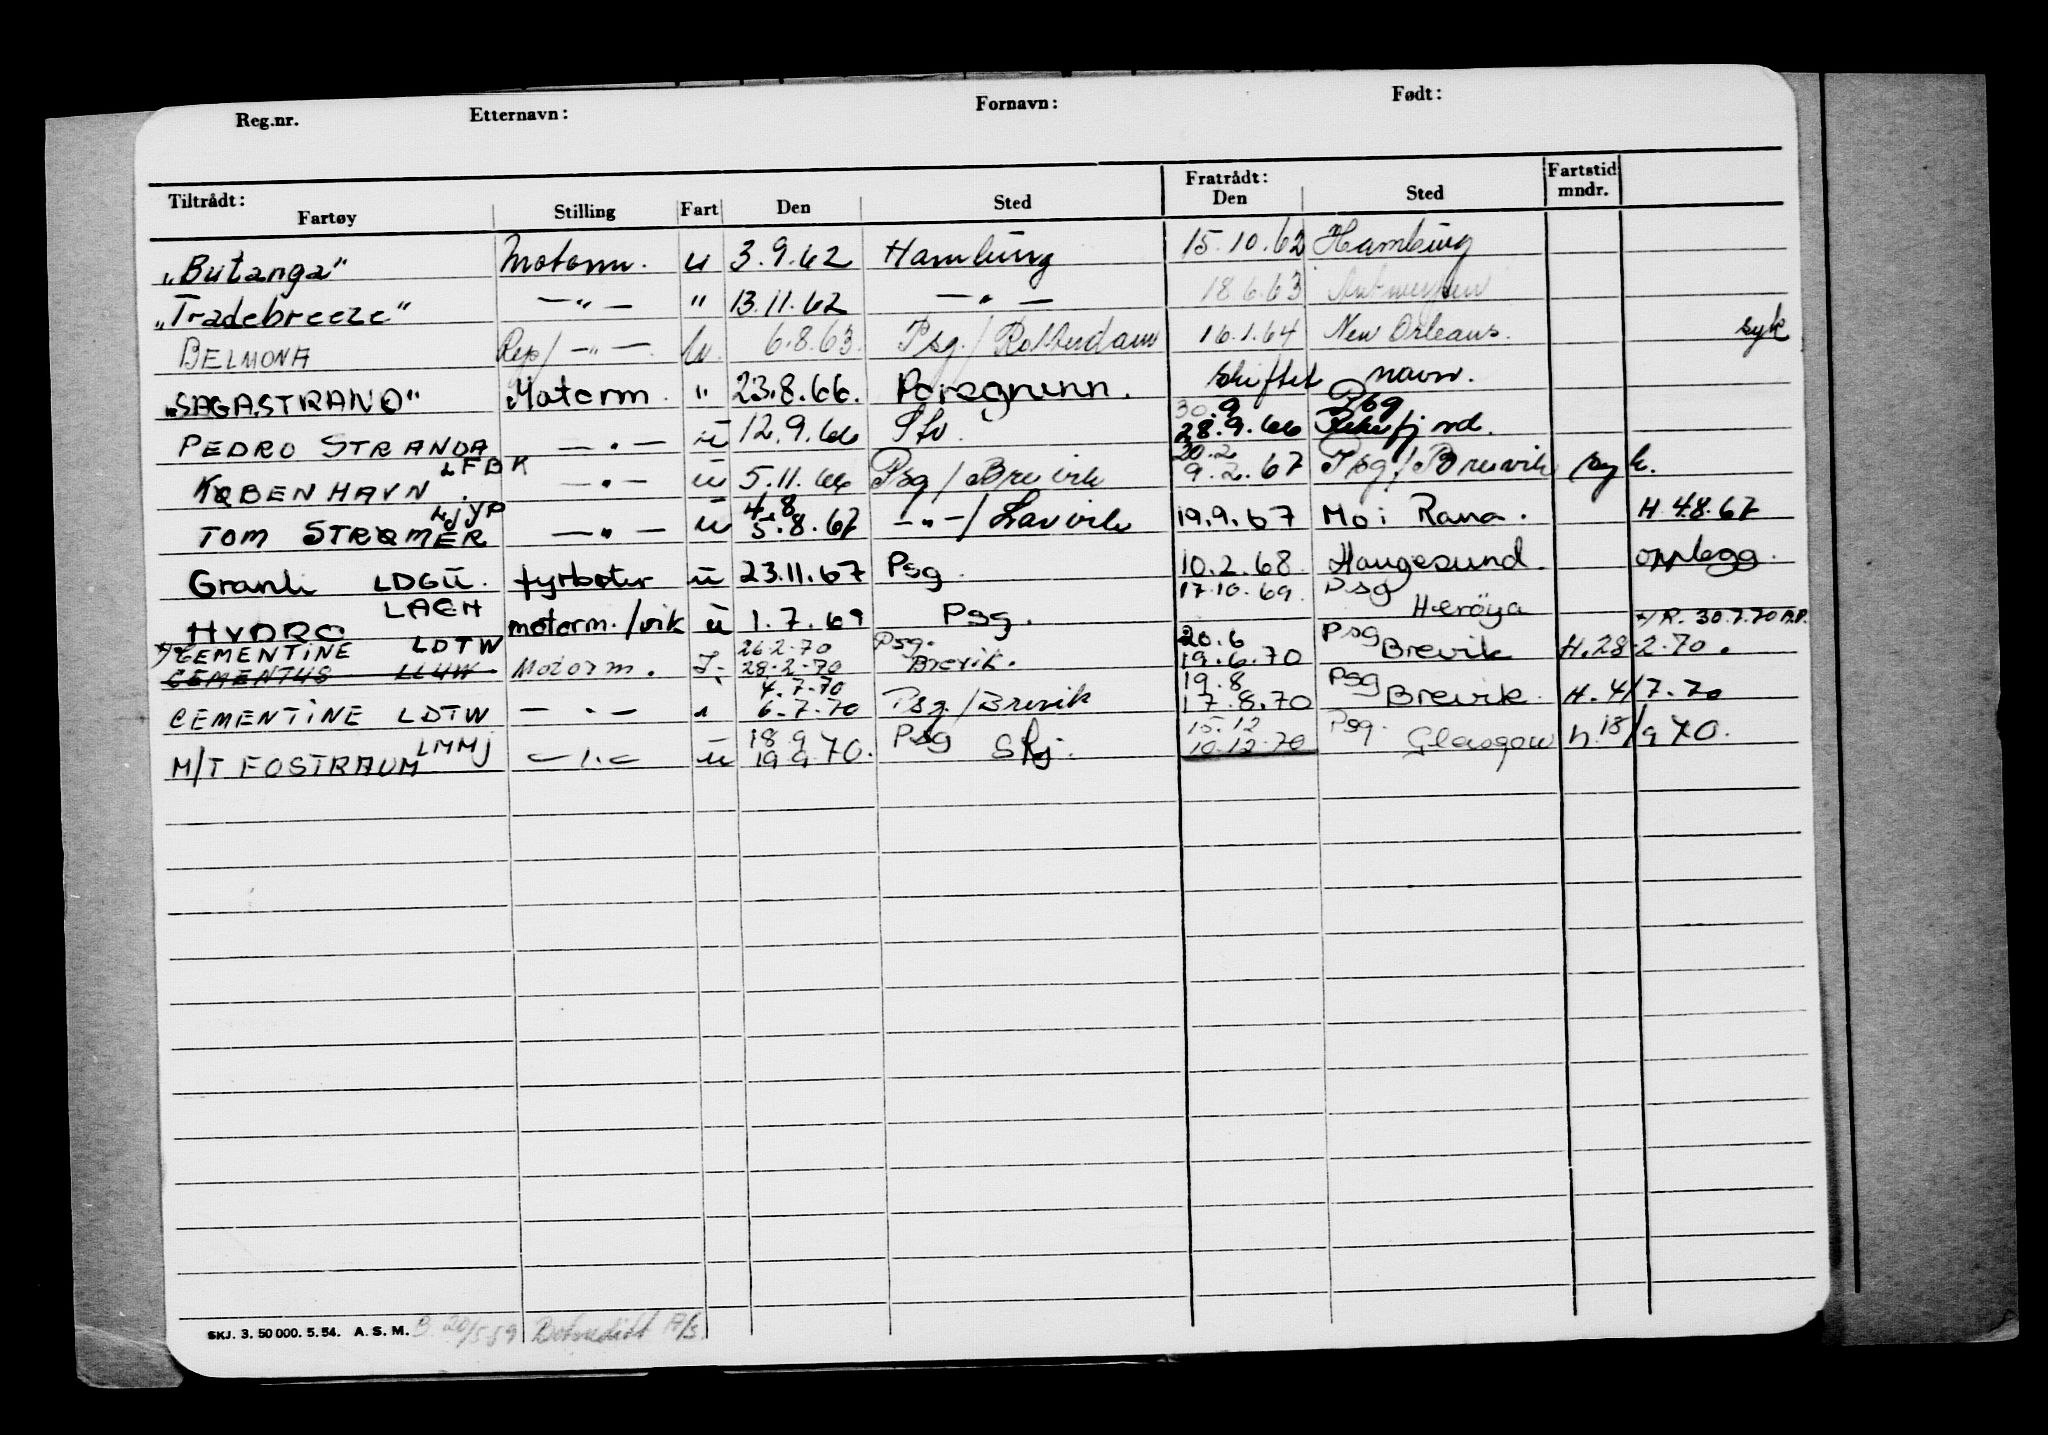 Reg.nr. Etternavn: Fornavn: Født:
Tiltrådt: Fratrådt: Fartstid
Fartøy Stilling Fart Den Sted Den Sted mndr.
"Butanga" Motorm. u 3.9.62 Hamburg 15.10.62 Hamburg
"Tradebreeze" —"— " 13.11.62 —"— 18.6.63 Antwerpen
BELMONA Rep/ —"— 6.8.63. Psg./Rotterdam 16.1.64 New Orleans. syk
"SAGASTRAND" Motorm. " 23.8.66. Porsgrunn. skiftet navn.
30.9 Psg
PEDRO STRANDA —"— u 12.9.66 Sfv. 28.9.66 Rekefjord.
LFBK 20.2
KØBENHAVN. —"— u 5.11.66 Psg/Brevik 9.2.67 Psg/Brevik syk.
LJYP 4.8
TOM STRØMER —"— u 5.8.67 —"—/Larvik 19.9.67 Mo i Rana. H 4.8.67
Granli LDGU. fyrbøter u 23.11.67 Psg. 10.2.68. Haugesund. opplegg.
LAEH 17.10.69. Psg
HYDRO motorm./vik u 1.7.69 Psg. Herøya
x) R. 30.7.70 A.P.
x) CEMENTINE LDTW 26.2.70 Psg. 20.6 Psg
CEMENTUS LLUW Motorm. I. 28.2.70 Brevik. 19.6.70 Brevik H. 28.2.70.
4.7.70 19.8 Psg
CEMENTINE LDTW —"— 6.7.70 Psg./Brevik 17.8.70 Brevik. H. 4/7.70
LMMJ 18.9 Psg 15.12 Psg.
M/T FOSTRAUM —"— u 19.9.70. Skj. 10.12.70 Glasgow h. 18/9 70.
SKJ. 3. 50 000. 5. 54. A. S. M. B. 20/5 59